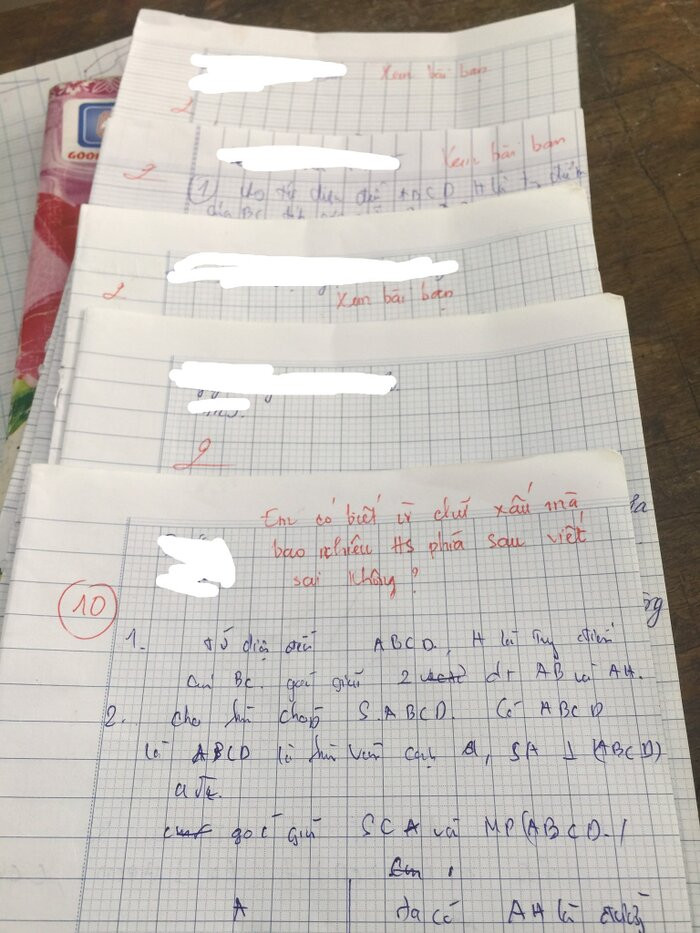 Xem bài bạn
2
GOO
Xem bài bạn
2
1 Cho tứ diện đều ABCD, H là tr điểm
của BC
2
Xem bài bạn
2
Em có biết vì chữ xấu mà
bao nhiêu HS phía sau viết
sai không?
10
1. tứ diện đều ABCD, H là trung điểm
của BC. góc giữa 2 dt AB và AH.
2. cho hình chóp S.ABCD. Có ABCD
là ABCD là hình vuông cạnh a, SA ⊥ (ABCD)
a√2.
góc giữa SCA và MP(ABCD.)
A
ta có AH là đường